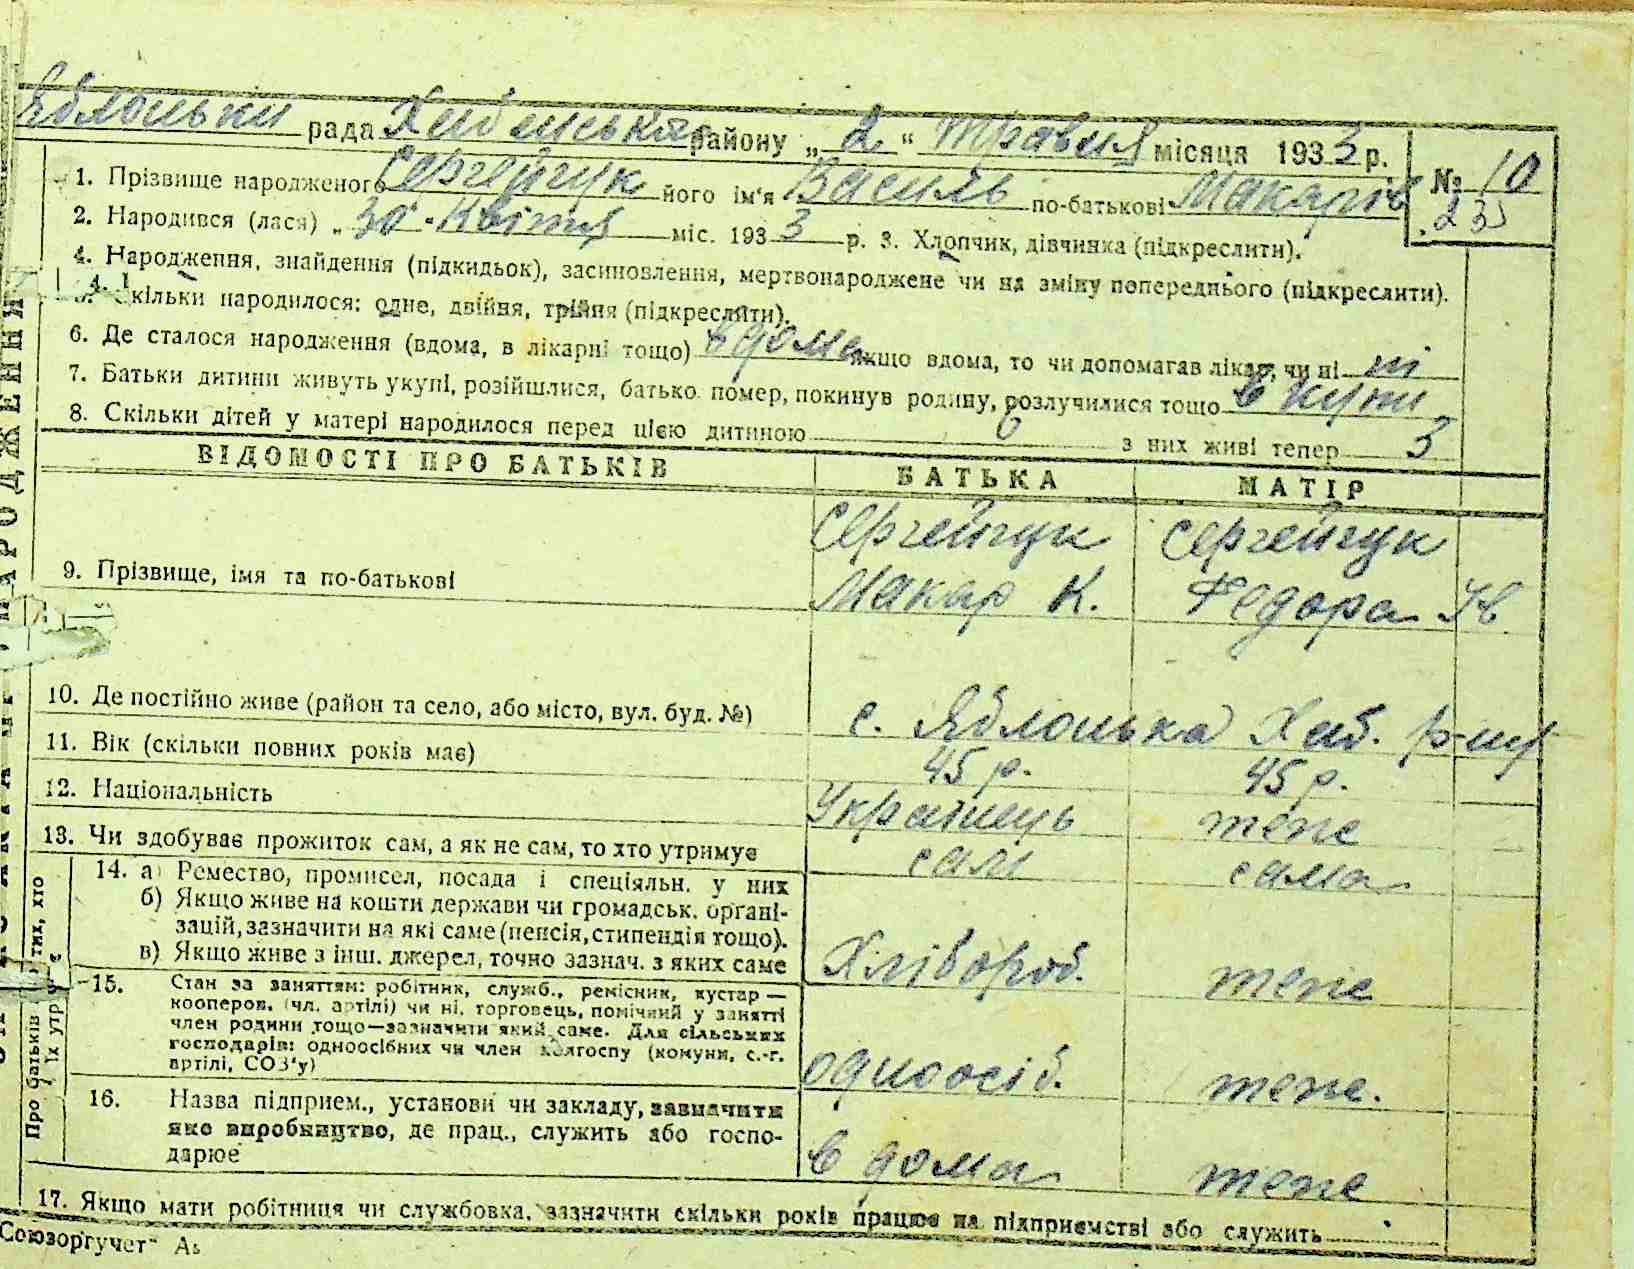 Яблоньки рада Хабенська району „2“ Травня місяця 1933 р. № 10
1. Прізвище народженого Сергейчук його ім'я Василь по-батькові Макарів
2. Народився (лася) „30“ Квітня міс. 1933 р. 3. Хлопчик, дівчинка (підкреслити).
4. Народження, знайдення (підкидьок), засиновлення, мертвонароджене чи на зміну попереднього (підкреслити).
Скільки народилося: одне, двійня, трійня (підкреслити).
6. Де сталося народження (вдома, в лікарні тощо) в дома якщо вдома, то чи допомагав лікар, чи ні ні
7. Батьки дитини живуть укупі, розійшлися, батько помер, покинув родину, розлучилися тощо в купи
8. Скільки дітей у матері народилося перед цією дитиною 6 з них живі тепер 3
ВІДОМОСТІ ПРО БАТЬКІВ БАТЬКА МАТІР
Сергейчук Сергейчук
9. Прізвище, імя та по-батькові Макар К. Федора Ів
10. Де постійно живе (район та село, або місто, вул. буд. №) с. Яблонька Хаб. р-ну
11. Вік (скільки повних років має) 45 р. 45 р.
12. Національність Українець тепе
13. Чи здобуває прожиток сам, а як не сам, то хто утримує сам сама
14. а) Ремество, промисел, посада і спеціяльн. у них
б) Якщо живе на кошти держави чи громадськ. органі-
зацій, зазначити на які саме (пенсія, стипендія тощо).
в) Якщо живе з інш. джерел, точно зазнач. з яких саме Хлібороб. тепе
15. Стан за заняттям: робітник, служб., ремісник, кустар —
кооперов. (чл. артілі) чи ні, торговець, помічний у занятті
член родини тощо—зазначити який саме. Для сільських
господарів: одноосібних чи член колгоспу (комуни, с.-г.
артілі, СОЗ'у) одноосіб. тепе.
16. Назва підприєм., установи чи закладу, зазначити
яке виробництво, де прац., служить або госпо-
дарює в дома тепе
17. Якщо мати робітниця чи службовка, зазначити скільки років працює на підприємстві або служить
Союзоргучет"